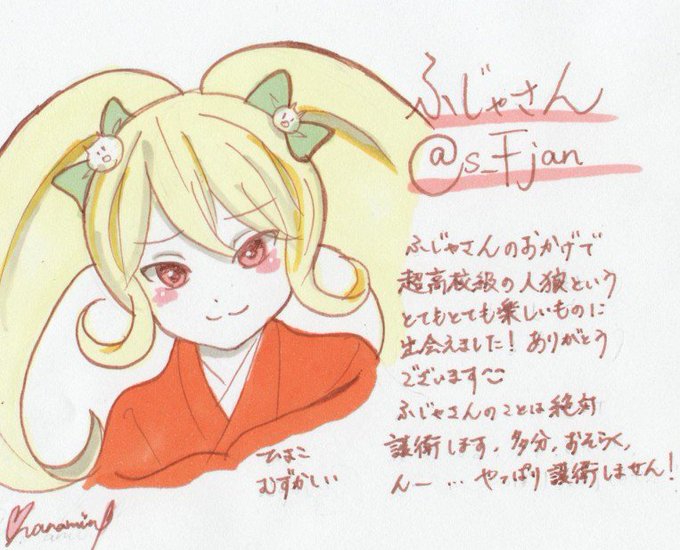 ふじゃさん
@s_Fjan
ふじゃさんのおかげで
超高校級の人狼という
とてもとても楽しいものに
出会えました！ありがとう
ございます
ふじゃさんのことは絶対
護衛します。多分、おそらく、
んー…やっぱり護衛しません！
ひよこ
むずかしい
hanamin